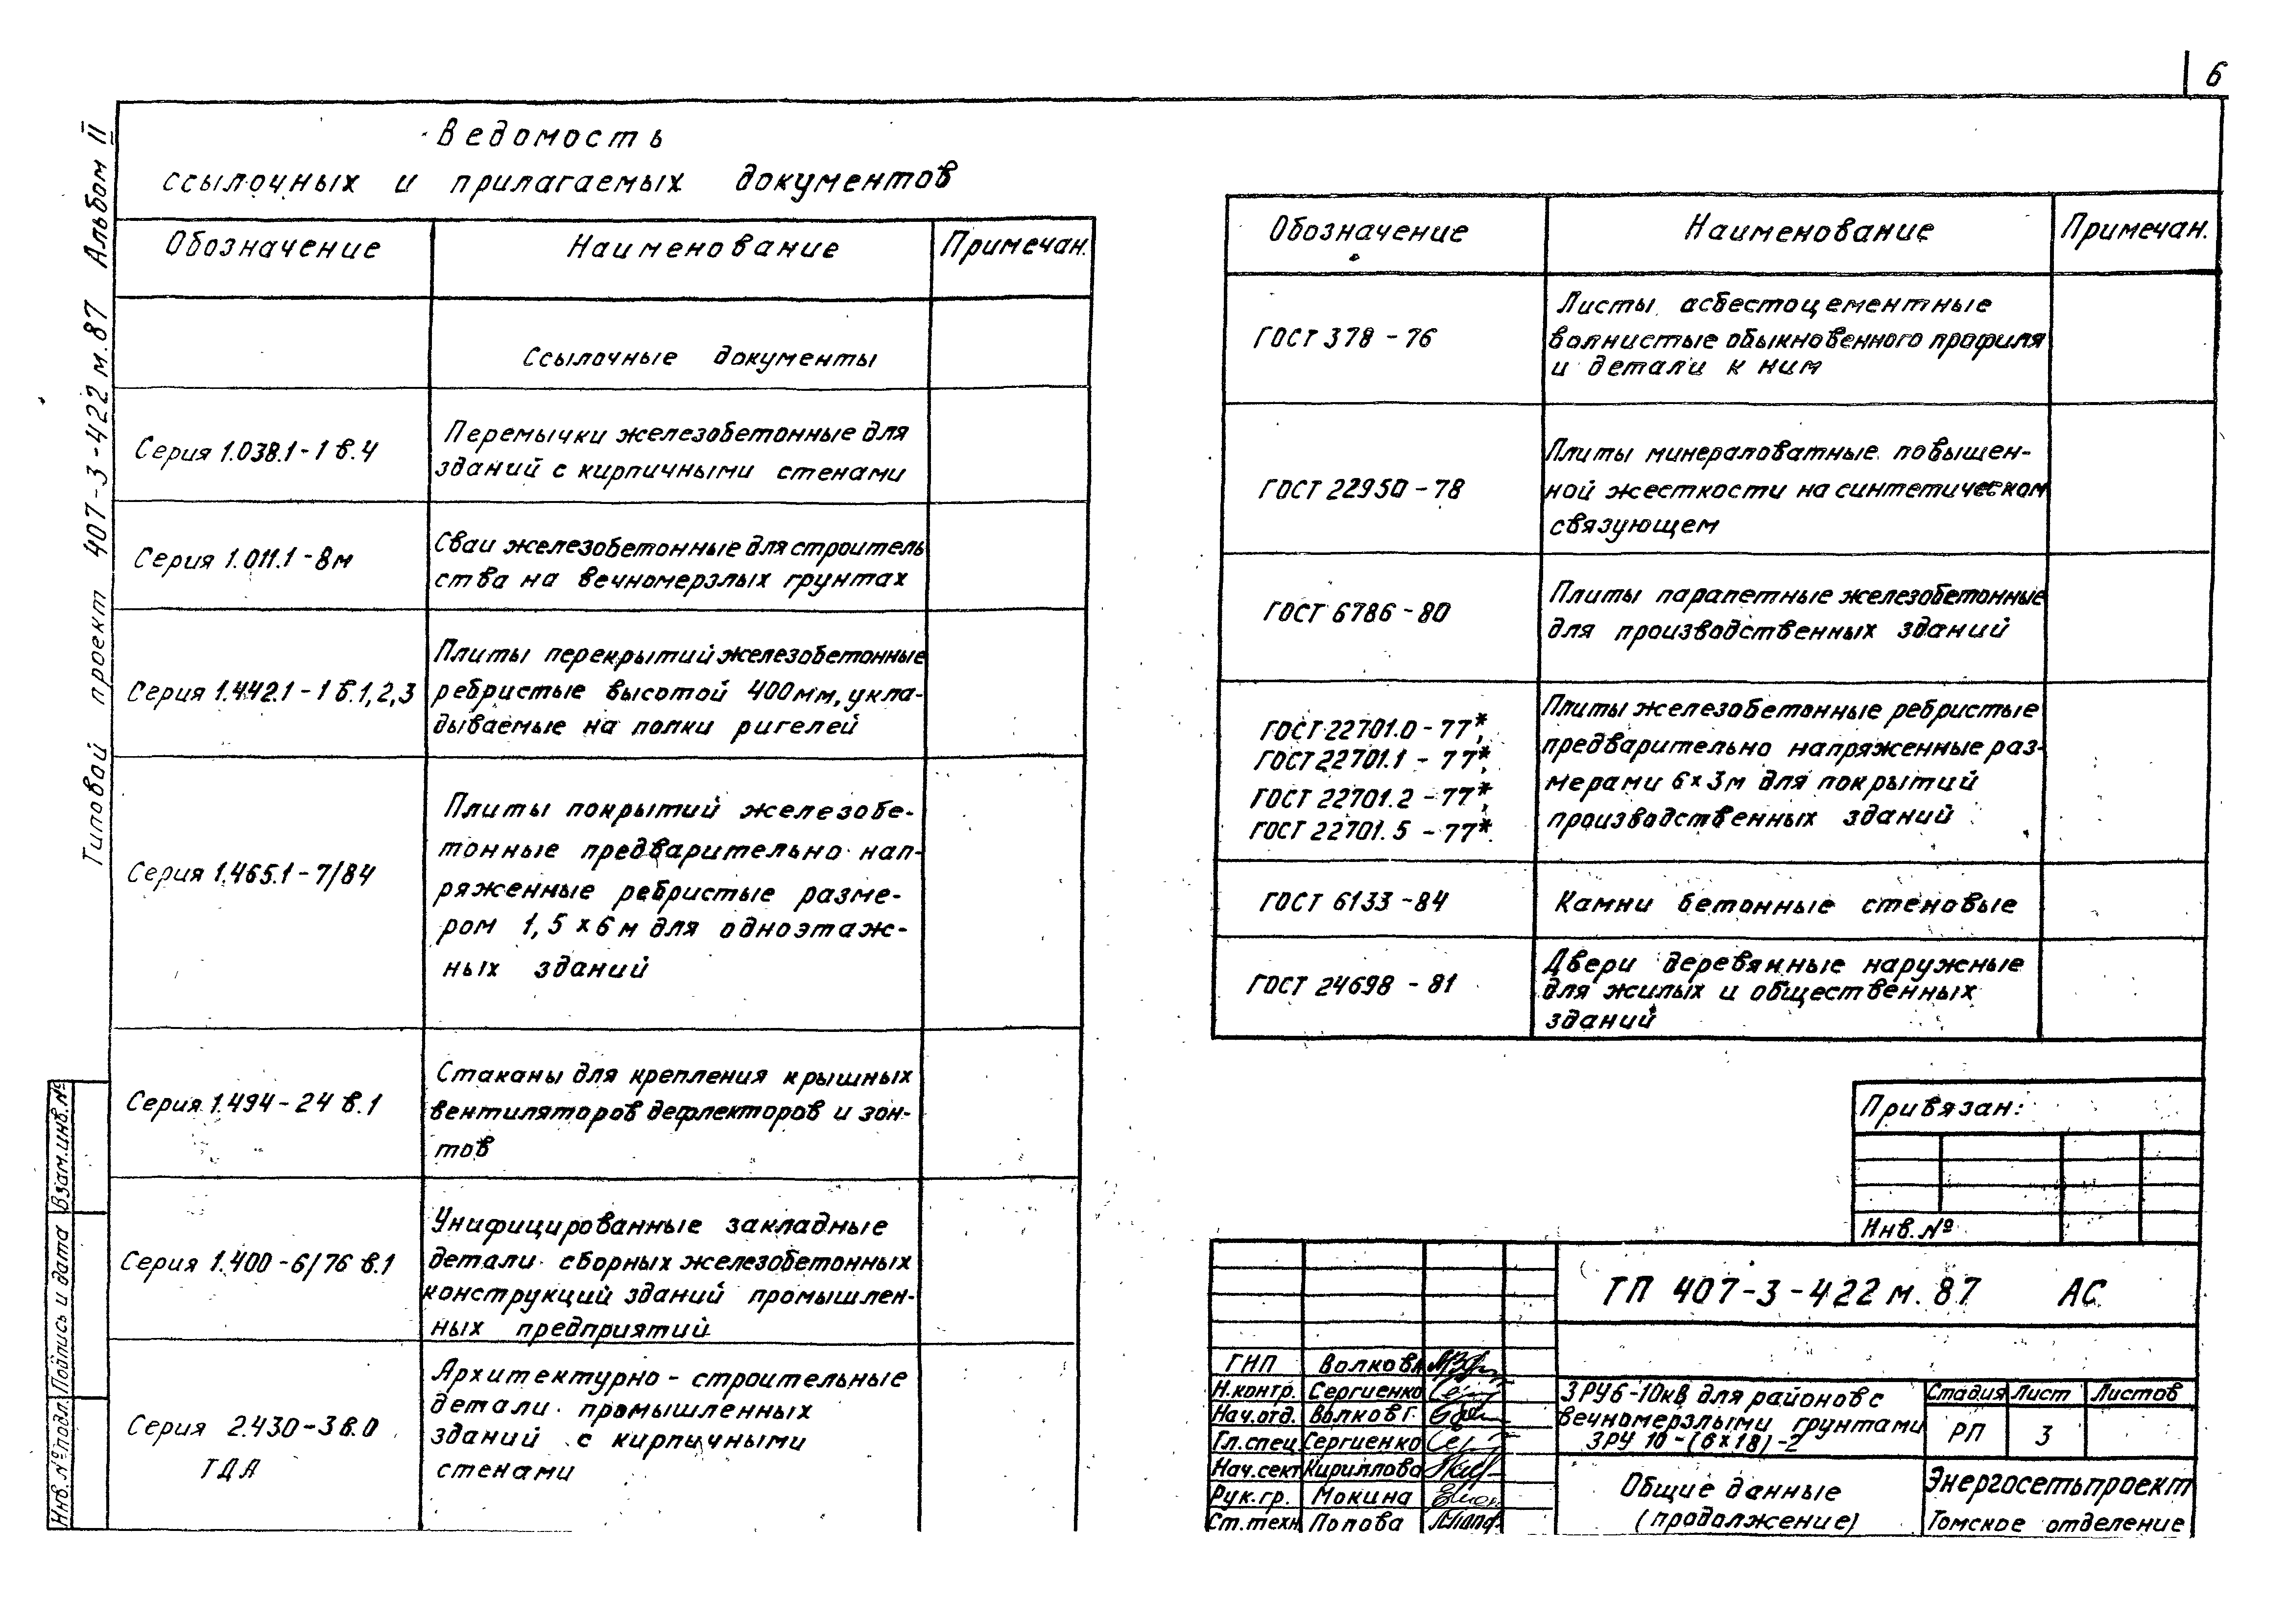 6
Типовой проект 407-3-422 м.87 Альбом II
Ведомость
ссылочных и прилагаемых документов
Обозначение
Наименование
Примечан.
Ссылочные документы
Серия 1.038.1-1 в.4
Перемычки железобетонные для
зданий с кирпичными стенами
Серия 1.011.1-8м
Сваи железобетонные для строитель
ства на вечномерзлых грунтах
Серия 1.442.1-1 в.1,2,3
Плиты перекрытий железобетонные
ребристые высотой 400мм, укла-
дываемые на полки ригелей
Серия 1.465.1-7/84
Плиты покрытий железобе-
тонные предварительно нап-
ряженные ребристые разме-
ром 1,5х6м для одноэтаж-
ных зданий
Серия 1.494-24 в.1
Стаканы для крепления крышных
вентиляторов дефлекторов и зон-
тов
Серия 1.400-6/76 в.1
Унифицированные закладные
детали сборных железобетонных
конструкций зданий промышлен-
ных предприятий
Серия 2.430-3 в.0
ТДА
Архитектурно-строительные
детали промышленных
зданий с кирпичными
стенами
Обозначение
Наименование
Примечан.
ГОСТ 378-76
Листы асбестоцементные
волнистые обыкновенного профиля
и детали к ним
ГОСТ 22950-78
Плиты минераловатные повышен-
ной жесткости на синтетическом
связующем
ГОСТ 6786-80
Плиты парапетные железобетонные
для производственных зданий
ГОСТ 22701.0-77*,
ГОСТ 22701.1-77*,
ГОСТ 22701.2-77*,
ГОСТ 22701.5-77*.
Плиты железобетонные ребристые
предварительно напряженные раз-
мерами 6х3м для покрытий
производственных зданий
ГОСТ 6133-84
Камни бетонные стеновые
ГОСТ 24698-81
Двери деревянные наружные
для жилых и общественных
зданий
Привязан:
Инв.№
ТП 407-3-422 м.87 АС
ГИП Волков
Н.контр. Сергиенко
Нач.отд. Волков Г.
Гл.спец Сергиенко
Нач.сект Кириллова
Рук.гр. Мокина
Ст.техн Попова
ЗРУ 6-10кВ для районов с
вечномерзлыми грунтами
ЗРУ 10-(6х18)-2
Стадия Лист Листов
РП 3
Общие данные
(продолжение)
Энергосетьпроект
Томское отделение
Взам.инв.№
Подпись и дата
Инв.№подл.